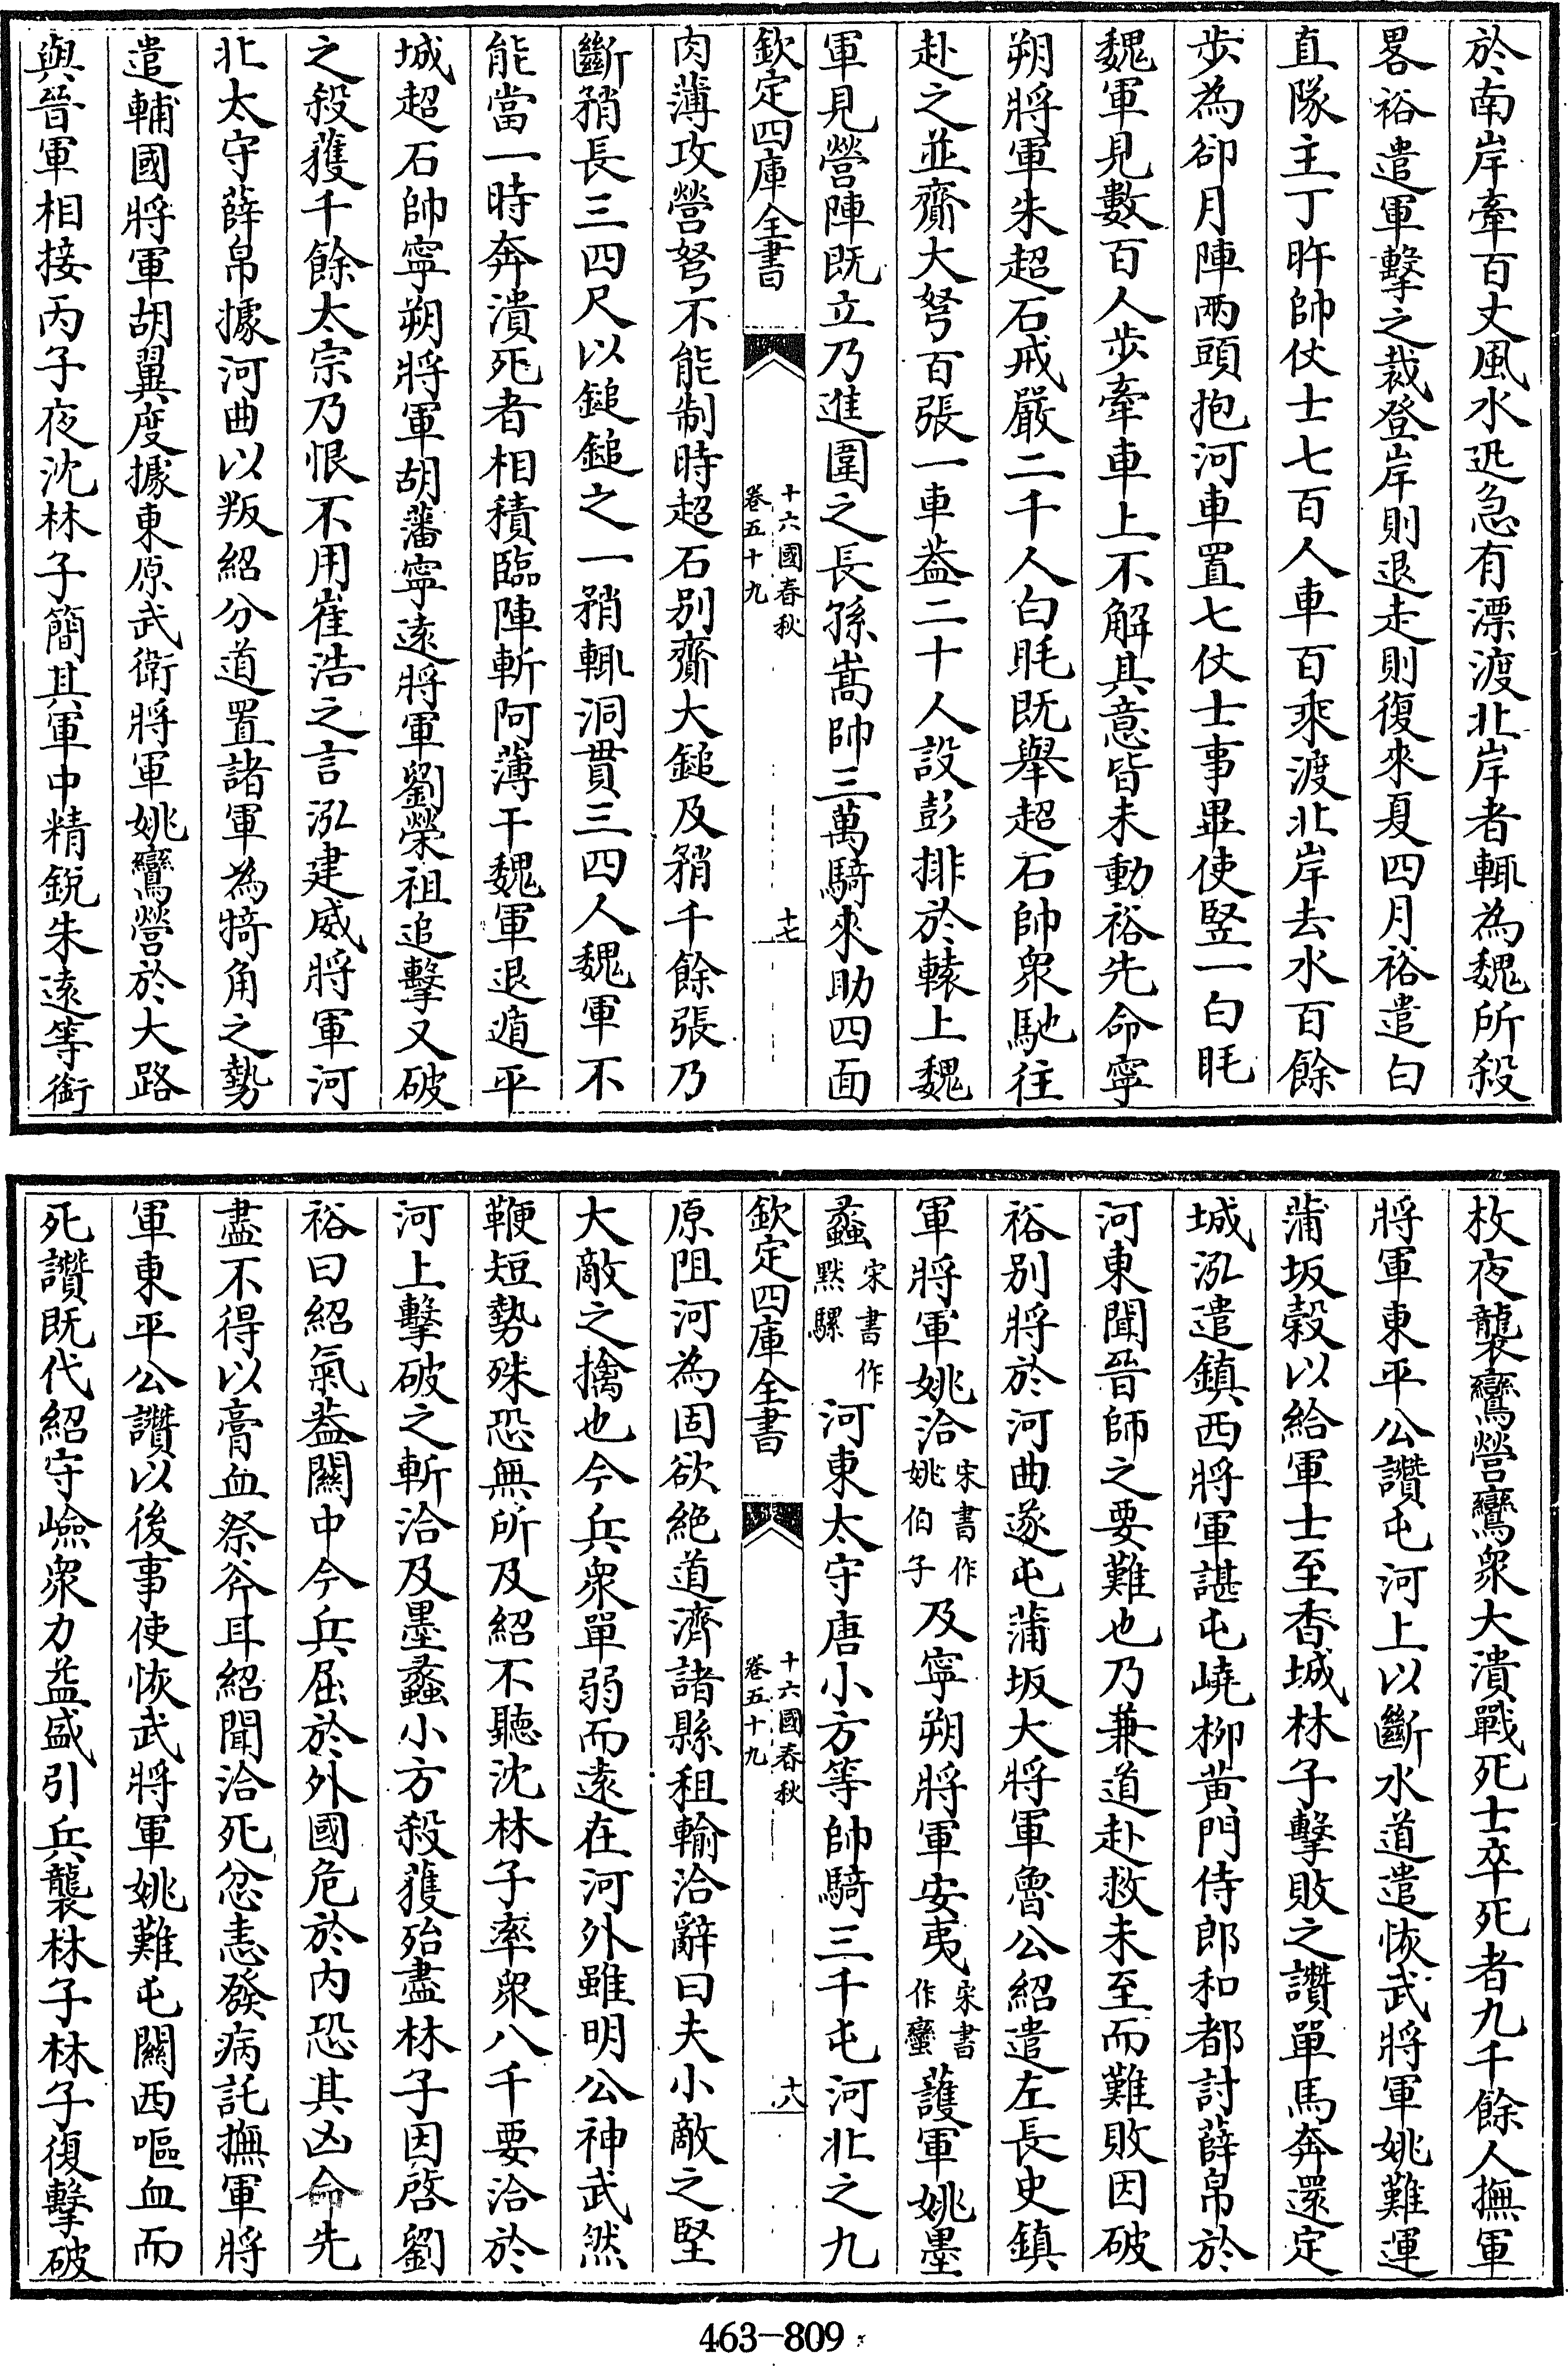 於南岸牽百丈風水迅急有漂渡北岸者輒為魏所殺
畧裕遣軍擊之裁登岸則退走則復來夏四月裕遣白
直隊主丁旿帥仗士七百人車百乘渡北岸去水百餘
步為卻月陣兩頭抱河車置七仗士事畢使竪一白毦
魏軍見數百人步牽車上不解其意皆未動裕先命寧
朔將軍朱超石戒嚴二千人白毦既舉超石帥衆馳往
赴之並齎大弩百張一車葢二十人設彭排於轅上魏
軍見營陣既立乃進圍之長孫嵩帥三萬騎來助四面
欽定四庫全書
十六國春秋
卷五十九
十七
肉薄攻營弩不能制時超石别齎大鎚及矟千餘張乃
斷矟長三四尺以鎚鎚之一矟輒洞貫三四人魏軍不
能當一時奔潰死者相積臨陣斬阿薄干魏軍退遁平
城超石帥寧朔將軍胡藩寧遠將軍劉榮祖追擊又破
之殺獲千餘太宗乃恨不用崔浩之言泓建威將軍河
北太守薛帛據河曲以叛紹分道置諸軍為犄角之勢
遣輔國將軍胡翼度據東原武衛將軍姚鸞營於大路
與晉軍相接丙子夜沈林子簡其軍中精鋭朱遠等銜
枚夜襲鸞營鸞衆大潰戰死士卒死者九千餘人撫軍
將軍東平公讚屯河上以斷水道遣恢武將軍姚難運
蒲坂穀以給軍士至香城林子擊敗之讚單馬奔還定
城泓遣鎮西將軍諶屯嶢柳黄門侍郎和都討薛帛於
河東聞晉師之要難也乃兼道赴救未至而難敗因破
裕别將於河曲遂屯蒲坂大將軍魯公紹遣左長史鎮
軍將軍姚洽宋書作姚伯子及寧朔將軍安夷宋書作蠻護軍姚墨
蠡宋書作黙騾河東太守唐小方等帥騎三千屯河北之九
欽定四庫全書
十六國春秋
卷五十九
十八
原阻河為固欲絶道濟諸縣租輸洽辭曰夫小敵之堅
大敵之擒也今兵衆單弱而遠在河外雖明公神武然
鞭短勢殊恐無所及紹不聽沈林子率衆八千要洽於
河上擊破之斬洽及墨蠡小方殺獲殆盡林子因啓劉
裕曰紹氣葢關中今兵屈於外國危於内恐其凶命先
盡不得以膏血祭斧耳紹聞洽死忿恚發病託撫軍將
軍東平公讚以後事使恢武將軍姚難屯關西嘔血而
死讚既代紹守嶮衆力益盛引兵襲林子林子復擊破
463-809